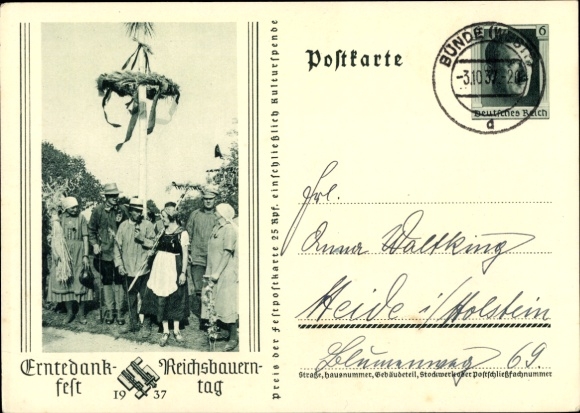 Postkarte
BÜNDE (WESTF)
-3.10.37.-20
d
6
Deutsches Reich
Preis der Festpostkarte 25 Rpf. einschließlich Kulturspende
Frl.
Anna Waltking
Heide i/Holstein
Blumenweg 69.
Straße, Hausnummer, Gebäudeteil, Stockwerk oder Postschließfachnummer
Erntedank- Reichsbauern-
fest 1937 tag